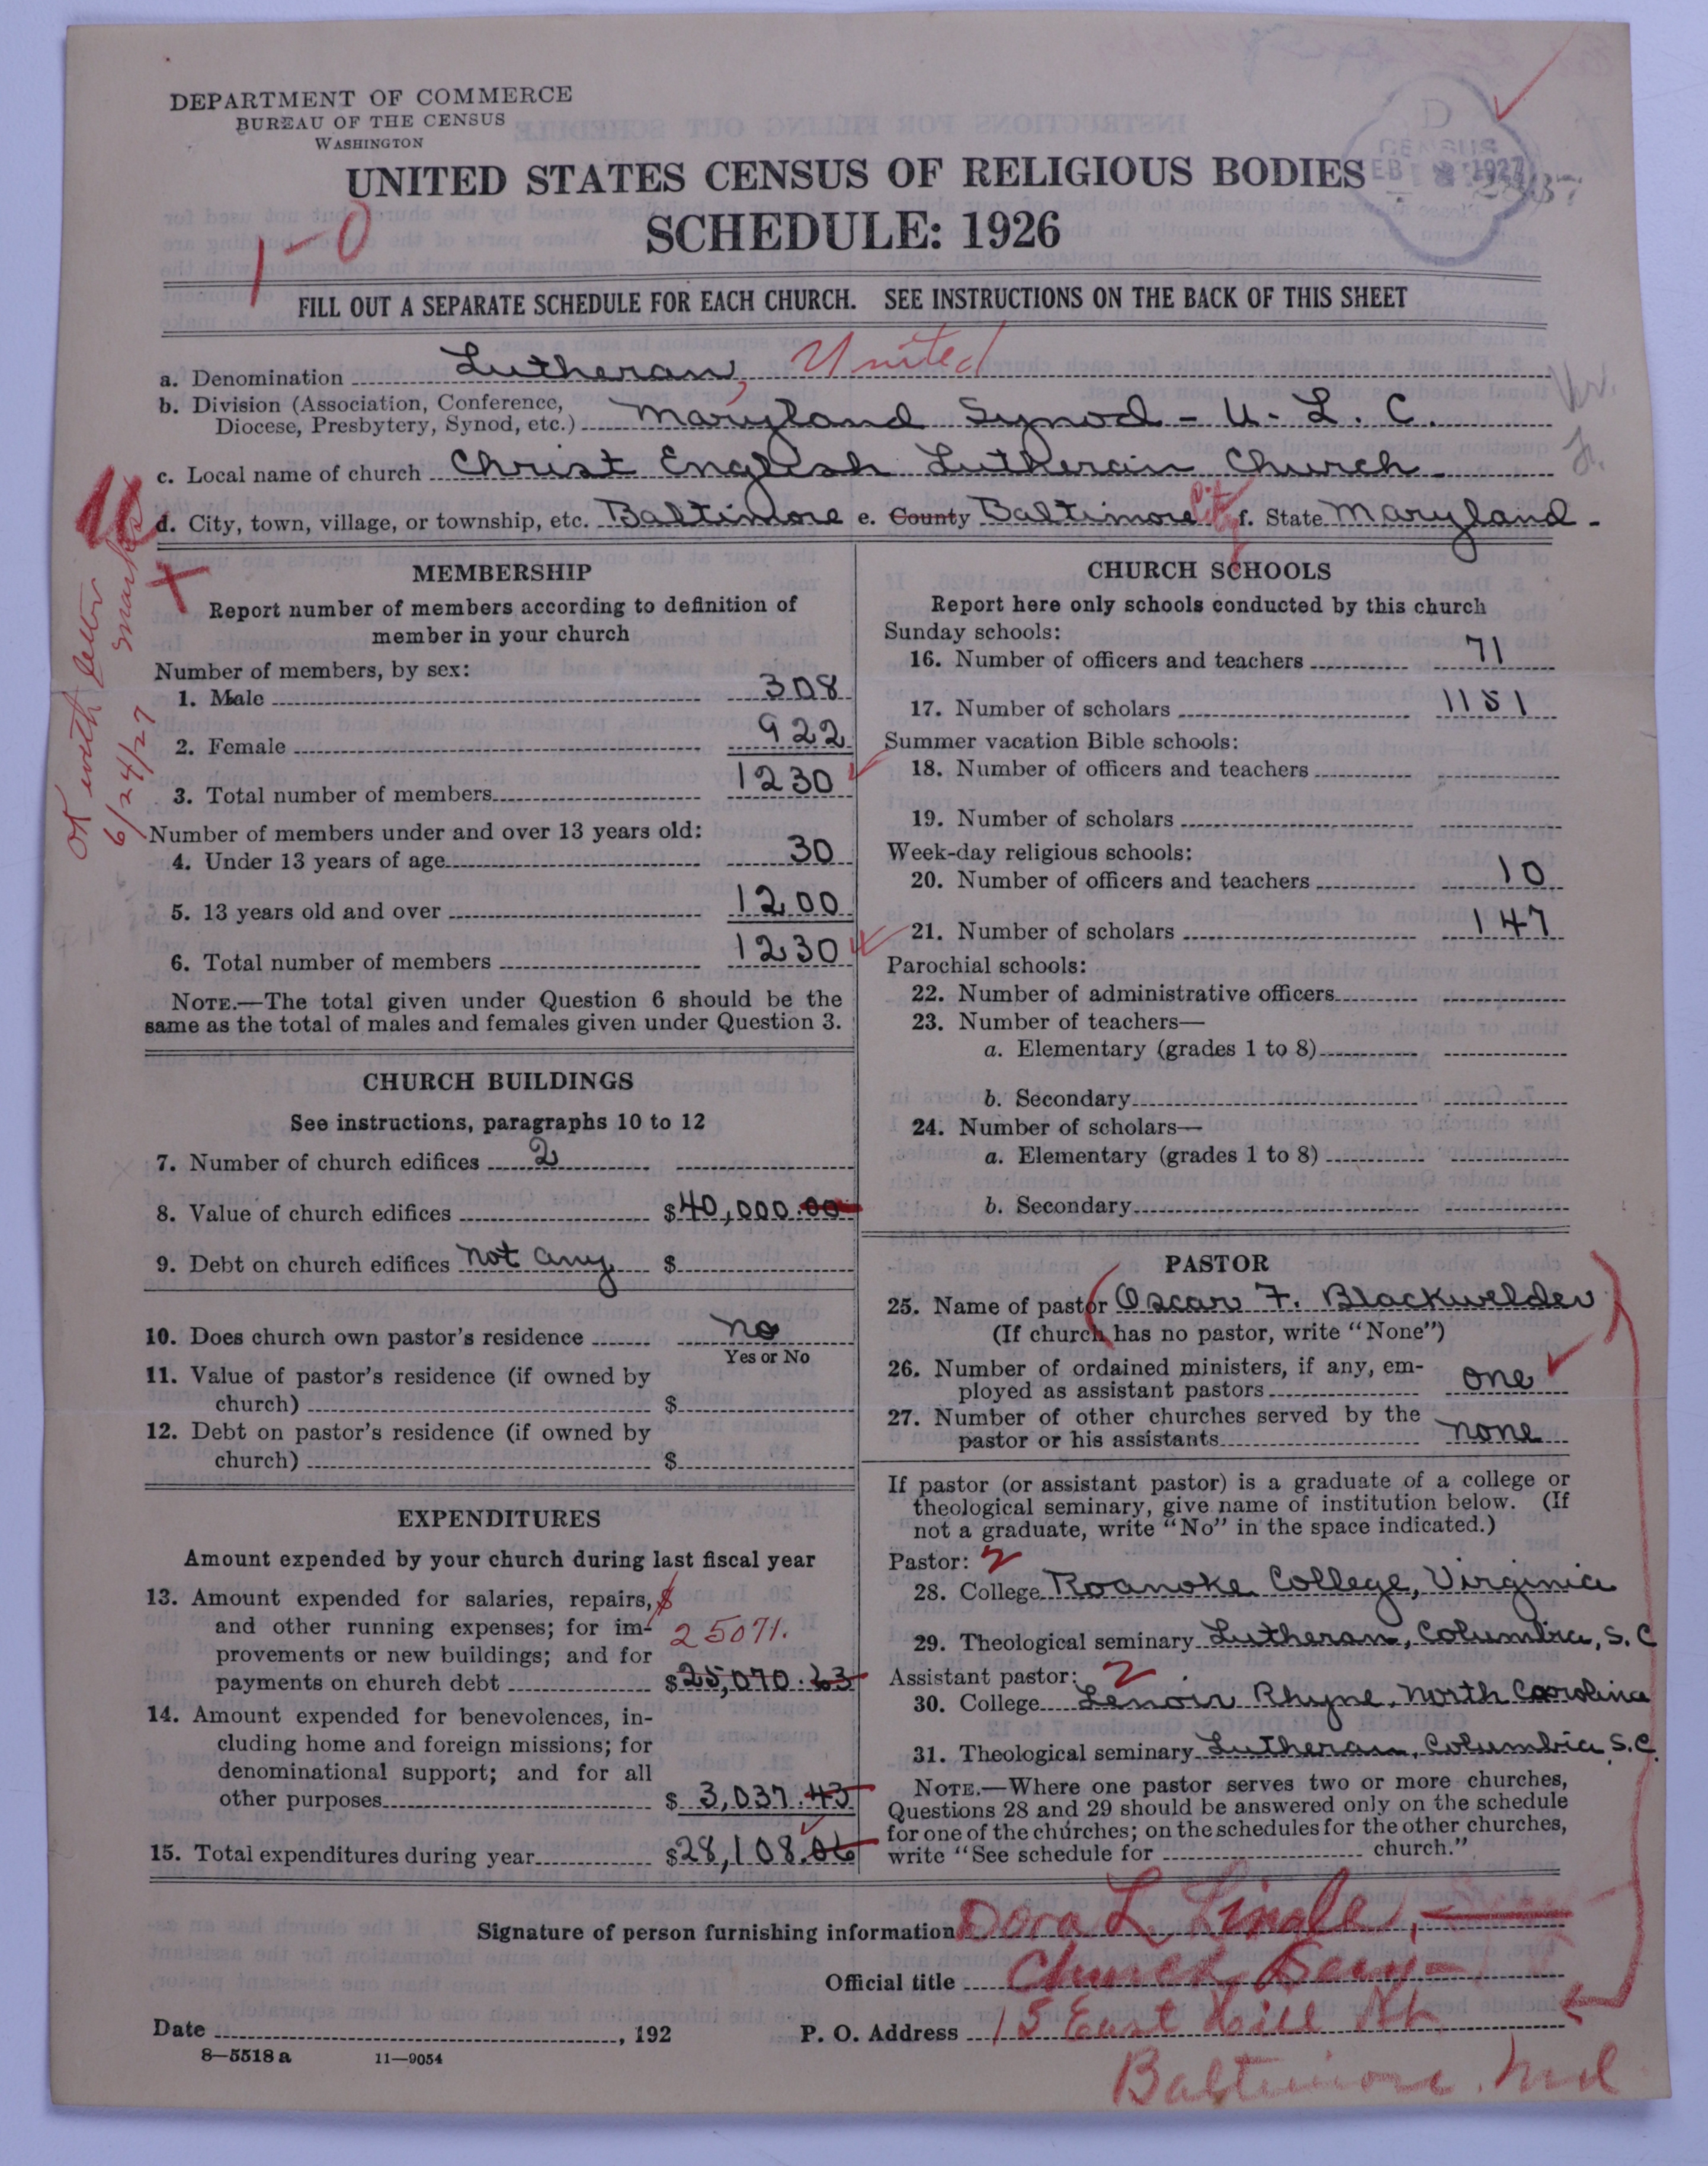 DEPARTMENT OF COMMERCE
BUREAU OF THE CENSUS
WASHINGTON
D
CENSUS
FEB 8 1927
UNITED STATES CENSUS OF RELIGIOUS BODIES
SCHEDULE: 1926
1-0
FILL OUT A SEPARATE SCHEDULE FOR EACH CHURCH. SEE INSTRUCTIONS ON THE BACK OF THIS SHEET
a. Denomination Lutheran, United
b. Division (Association, Conference,
Diocese, Presbytery, Synod, etc.) Maryland Synod - U. L. C.
c. Local name of church Christ English Lutheran Church
d. City, town, village, or township, etc. Baltimore e. County Baltimore City f. State Maryland -
ok with letter
6/24/27
MEMBERSHIP
Report number of members according to definition of
member in your church
Number of members, by sex:
1. Male 308
2. Female 922
3. Total number of members 1230
Number of members under and over 13 years old:
4. Under 13 years of age 30
5. 13 years old and over 1200
6. Total number of members 1230
NOTE.—The total given under Question 6 should be the
same as the total of males and females given under Question 3.
CHURCH BUILDINGS
See instructions, paragraphs 10 to 12
7. Number of church edifices 2
8. Value of church edifices $40,000.00
9. Debt on church edifices not any $
10. Does church own pastor's residence no
Yes or No
11. Value of pastor's residence (if owned by
church) $
12. Debt on pastor's residence (if owned by
church) $
EXPENDITURES
Amount expended by your church during last fiscal year
13. Amount expended for salaries, repairs, $
and other running expenses; for im- 25071.
provements or new buildings; and for
payments on church debt $25,070.63
14. Amount expended for benevolences, in-
cluding home and foreign missions; for
denominational support; and for all
other purposes $3,037.43
15. Total expenditures during year $28,108.06
CHURCH SCHOOLS
Report here only schools conducted by this church
Sunday schools:
16. Number of officers and teachers 71
17. Number of scholars 1151
Summer vacation Bible schools:
18. Number of officers and teachers
19. Number of scholars
Week-day religious schools:
20. Number of officers and teachers 10
21. Number of scholars 147
Parochial schools:
22. Number of administrative officers
23. Number of teachers—
a. Elementary (grades 1 to 8)
b. Secondary
24. Number of scholars—
a. Elementary (grades 1 to 8)
b. Secondary
PASTOR
25. Name of pastor (Oscar F. Blackwelder)
(If church has no pastor, write "None")
26. Number of ordained ministers, if any, em-
ployed as assistant pastors one
27. Number of other churches served by the
pastor or his assistants none
If pastor (or assistant pastor) is a graduate of a college or
theological seminary, give name of institution below. (If
not a graduate, write "No" in the space indicated.)
Pastor: 2
28. College Roanoke College, Virginia
29. Theological seminary Lutheran, Columbia, S.C
Assistant pastor: 2
30. College Lenoir Rhyne, North Carolina
31. Theological seminary Lutheran, Columbia S.C.
NOTE.—Where one pastor serves two or more churches,
Questions 28 and 29 should be answered only on the schedule
for one of the churches; on the schedules for the other churches,
write "See schedule for church."
Signature of person furnishing information Dora L. Lingle,
Official title Church Secy-
Date , 192
P. O. Address 15 East Hill St.
Baltimore. Md
8—5518 a 11—9054